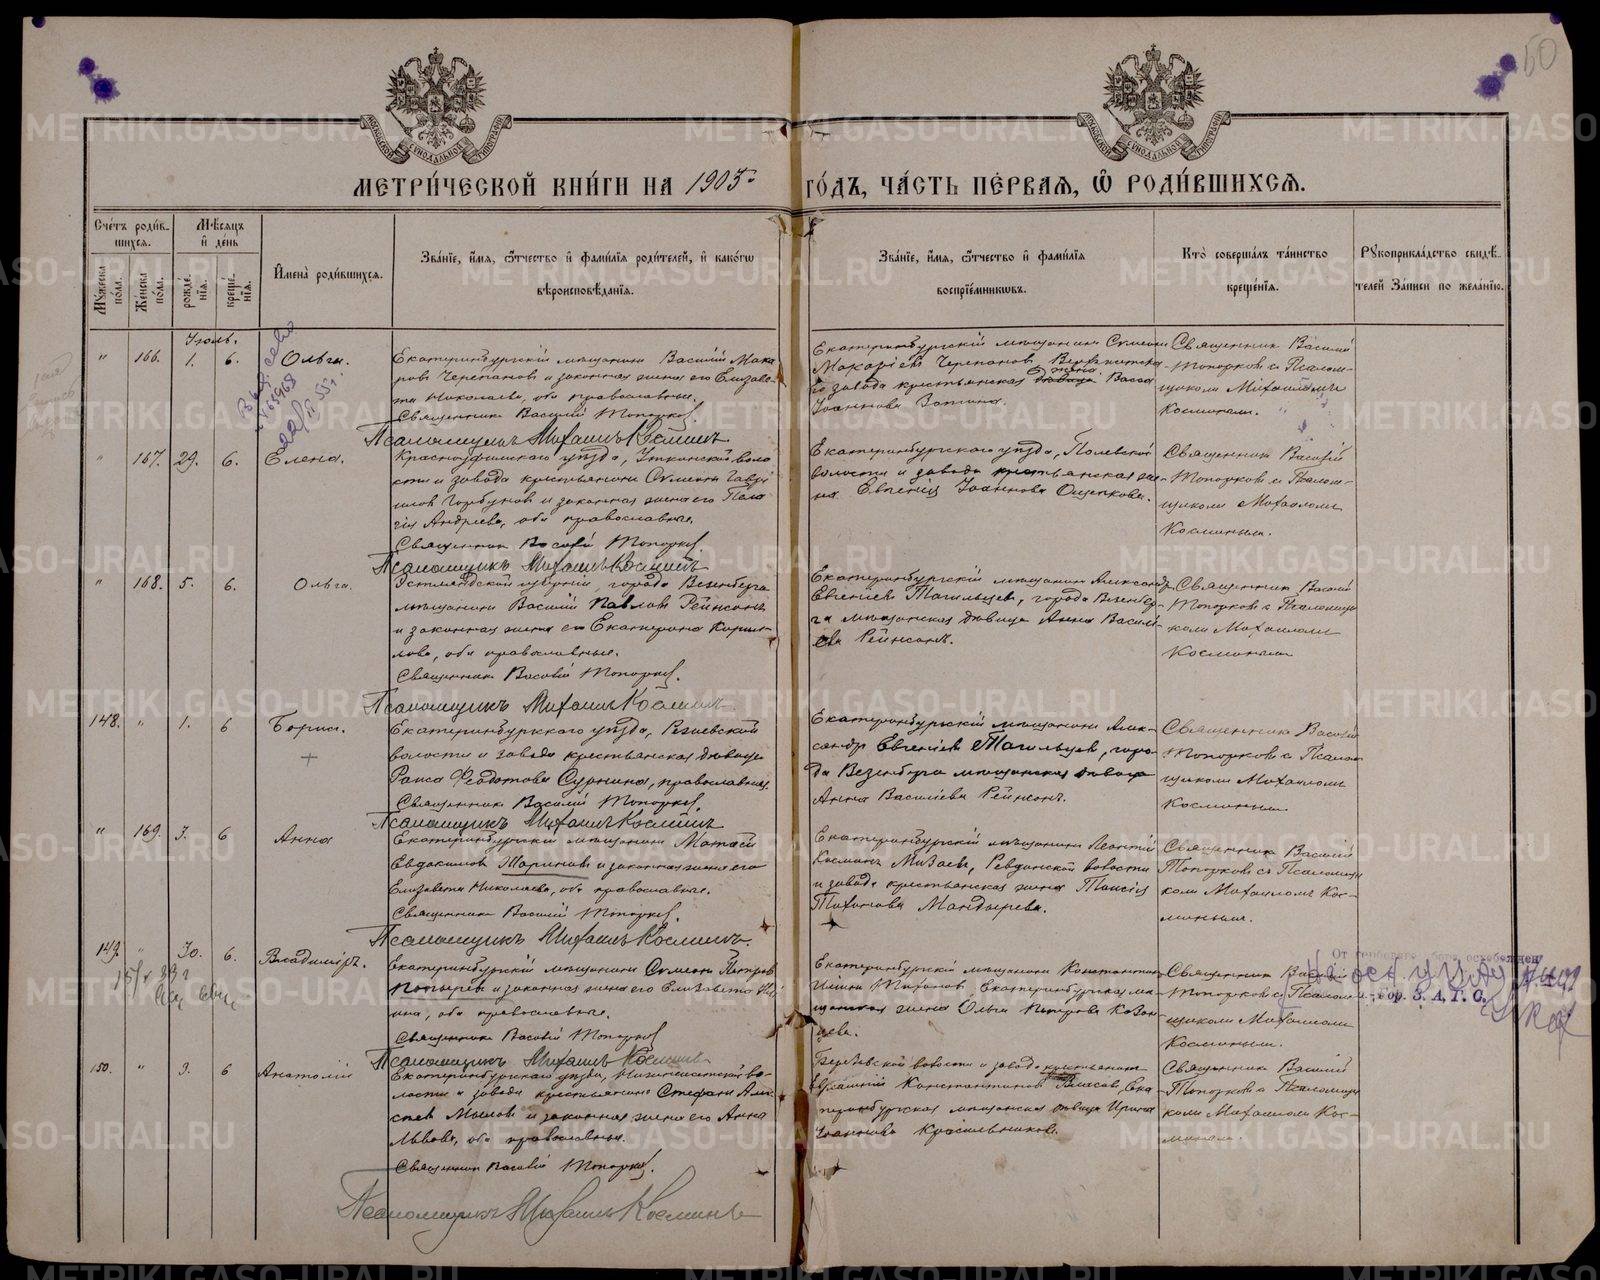 50
МОСКОВСКОЙ СѴНОДАЛЬНОЙ ТИПОГРАФІИ
МОСКОВСКОЙ СѴНОДАЛЬНОЙ ТИПОГРАФІИ
МЕТРИ́ЧЕСКОЙ КНИ́ГИ НА 1905 ГО́ДЪ, ЧА́СТЬ ПЕ́РВАЯ, Ѽ РОДИ́ВШИХСЯ.
Сче́тъ роди́вшихся.
Мꙋ́жеска по́ла.
Же́нска по́ла.
Мѣ́сяцъ и҆ де́нь
рожде́нїѧ.
креще́нїѧ.
И҆мена̀ роди́вшихся.
Зва́нїе, и҆́мя, ѻ҆́тчество и҆ фами́лїя роди́телей, и҆ како́гѡ
вѣроисповѣ́данїя.
Зва́нїе, и҆́мя, ѻ҆́тчество и҆ фами́лїя
воспрїе́мникѡвъ.
Кто̀ соверша́лъ та́инство
креще́нїя.
Рꙋкоприкла́дство свидѣ́-
телей за́писи по жела́нїю.
Іюль.
" 166. 1. 6. Ольга.
Екатеринбургскій мѣщанинъ Василій Мака-
ровъ Черепановъ и законная жена его Елизаве-
та Николаева, оба православные.
Священникъ Василій Топорковъ.
Псаломщикъ Михаилъ Косминъ
Екатеринбургскій мѣщанинъ Симеонъ
Макаріевъ Черепановъ, Верхисетска-
го завода крестьянская жена Васса
Іоаннова Зотина.
Священникъ Василій
Топорковъ съ Псалом-
щикомъ Михаиломъ
Косминымъ.
" 167. 29. 6. Елена.
Красноуфимскаго уѣзда, Уткинской воло-
сти и завода крестьянинъ Симеонъ Гаврі-
иловъ Горбуновъ и законная жена его Пела-
гія Андреева, оба православные.
Священникъ Василій Топорковъ.
Псаломщикъ Михаилъ Косминъ
Екатеринбургскаго уѣзда, Полевской
волости и завода крестьянская же-
на Евгенія Іоаннова Ощепкова.
Священникъ Василій
Топорковъ съ Псалом-
щикомъ Михаиломъ
Косминымъ.
" 168. 5. 6. Ольга.
Эстляндской губерніи, города Везенберга
мѣщанинъ Василій Павловъ Рейнсонъ
и законная жена его Екатерина Кирил-
лова, оба православные.
Священникъ Василій Топорковъ.
Псаломщикъ Михаилъ Косминъ
Екатеринбургскій мѣщанинъ Александръ
Евгеніевъ Тагильцевъ, города Везенбер-
га мѣщанская дѣвица Анна Василь-
ева Рейнсонъ.
Священникъ Василій
Топорковъ съ Псаломщи-
комъ Михаиломъ
Косминымъ
148. " 1. 6 Борисъ.
Екатеринбургскаго уѣзда, Режевской
волости и завода крестьянская дѣвица
Раиса Ѳеодотова Сурнина, православная.
Священникъ Василій Топорковъ.
Псаломщикъ Михаилъ Косминъ
Екатеринбургскій мѣщанинъ Алек-
сандръ Евгеніевъ Тагильцевъ, горо-
да Везенберга мѣщанская дѣвица
Анна Василіева Рейнсонъ.
Священникъ Василій
Топорковъ съ Псалом-
щикомъ Михаиломъ
Косминымъ.
" 169. 3. 6 Анна
Екатеринбургскій мѣщанинъ Матѳей
Евдокимовъ и законная жена его
Елизавета Николаева, оба православные.
Священникъ Василій Топорковъ.
Псаломщикъ Михаилъ Косминъ.
Екатеринбургскій мѣщанинъ Леонтій
Косминъ Мизаевъ, Ревдинской волости
и завода крестьянская жена Таисія
Тихонова Мандырева.
Священникъ Василій
Топорковъ съ Псаломщи-
комъ Михаиломъ Кос-
минымъ.
149. " 30. 6. Владиміръ.
Екатеринбургскій мѣщанинъ Симеонъ Петровъ
и законная жена его Елизавета
оба православные.
Священникъ Василій Топорковъ
Псаломщикъ Михаилъ Косминъ
Екатеринбургскій мѣщанинъ Константинъ
Тихановъ, Екатеринбургская мѣ-
щанская жена Ольга Петрова Казан-
цева.
Священникъ Василій
Топорковъ съ Псалом-
щикомъ Михаиломъ
Косминымъ.
Гор. З. А. Г. С.
150. " 3. 6 Анатолій
Екатеринбургскаго уѣзда, Нижнеисетской во-
лости и завода крестьянинъ Стефанъ Алек-
сѣевъ Мысовъ и законная жена его Анна
Львова, оба православные.
Священникъ Василій Топорковъ.
Псаломщикъ Михаилъ Косминъ
Березовской волости и завода крестьянинъ
Константиновъ Власовъ, Ека-
теринбургская мѣщанская дѣвица Ирина
Іоаннова Красильникова.
Священникъ Василій
Топорковъ съ Псаломщи-
комъ Михаиломъ Кос-
минымъ.
METRIKI.GASO-URAL.RU